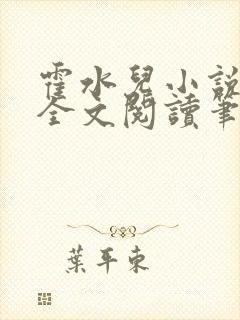 霍水兒小說
全文閱讀筆
葉平東